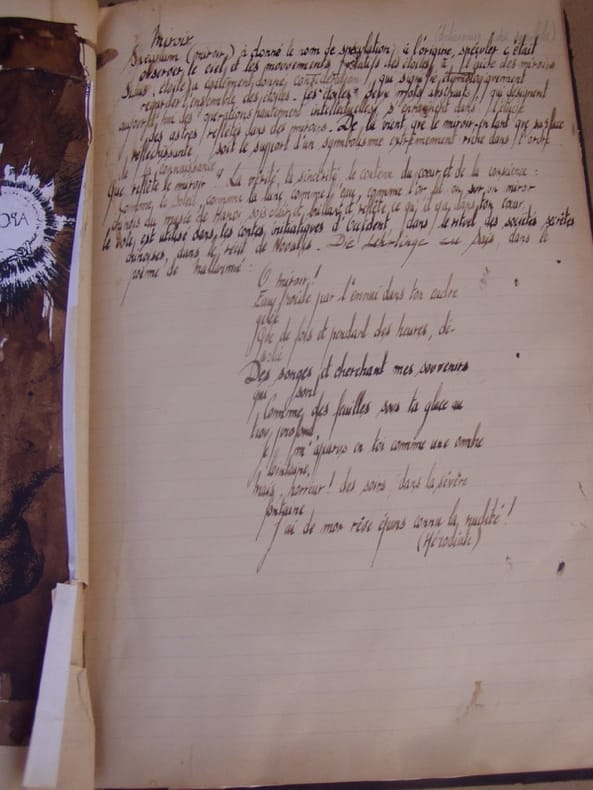 (dictionnaire des symboles)
Miroir
Speculum (miroir) a donné le nom de spéculation; à l'origine, spéculer c'était
observer le ciel et les mouvements relatifs des étoiles à l'aide des miroirs
Sidus, étoile a également donné considération, qui signifie étymologiquement
regarder l'ensemble des étoiles. Ces deux mots abstraits, qui désignent
aujourd'hui des opérations hautement intellectuelles, s'enracinent dans l'étude
des astres reflétés dans des miroirs. De là vient que le miroir en tant que surface
réfléchissante, soit le support d'un symbolisme extrêmement riche dans l'ordre
de la connaissance
Que reflète le miroir? La vérité, la sincérité, le contenu du cœur et de la conscience:
comme le Soleil, comme la lune comme l'eau, comme l'or lit on sur un miroir
chinois du musée de Hanoi, sois clair et brillant et reflète ce qu'il y a dans ton cœur
Le rôle est utilisé dans les contes initiatiques d'Occident, dans le rituel des sociétés secrètes
chinoises, dans le récit de Novalis. De dans le
poème de mallarmé:
O miroir!
Eau froide par l'ennui dans ton cadre
gelée
Que de fois et pendant des heures, dé-
solée
Des songes et cherchant mes souvenirs
qui sont
Comme des feuilles sous ta glace au
trou profond,
je m'apparus en toi comme une ombre
lointaine,
mais, horreur! des soirs, dans la sévère
fontaine
J'ai de mon rêve épars connu la nudité!
(Hérodiade)